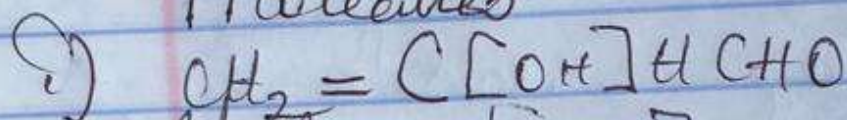 i) CH₂ = C[OH]H CHO